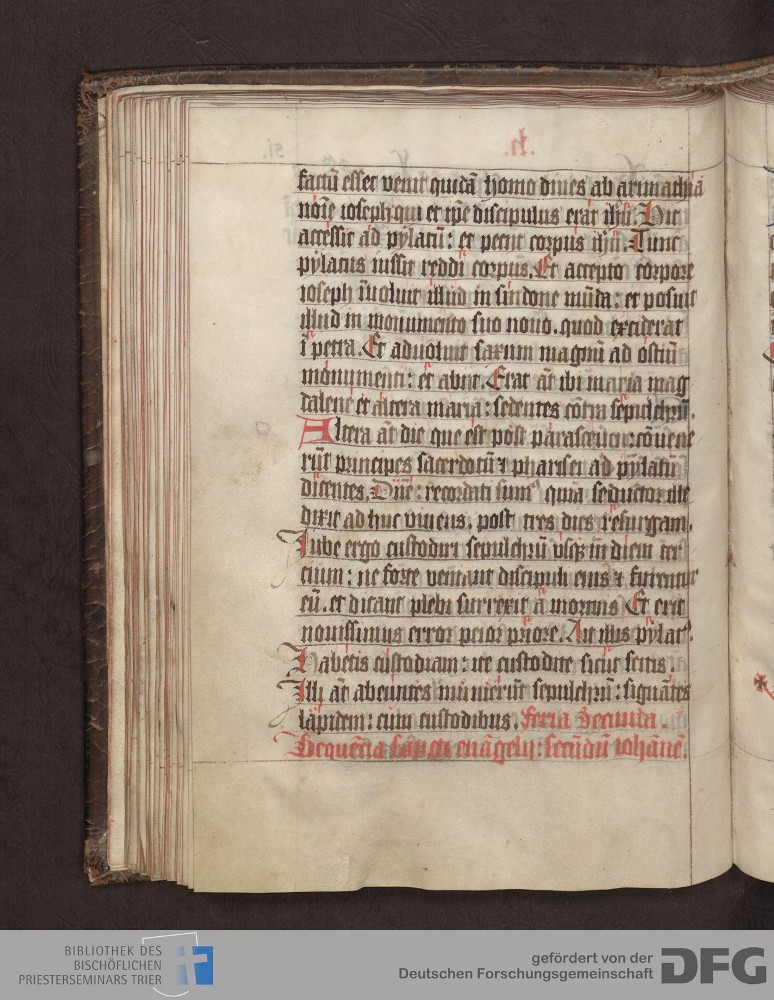 .h.
factū esset venit quidā homo dives ab arimathia
noīe ioseph qui et ip̄e discipulus erat ih̄u. Hic
accessit ad pylatū: et petiit corpus ih̄u. Tunc
pylatus iussit reddi corpus. Et accepto corpore
ioseph īuoluit illud in sindone mūda: et posuit
illud in monumento suo novo. quod exciderat
ī petra. Et aduoluit saxum magnū ad ostiū
monumenti: et abiit. Erat āt ibi maria mag
dalene et altera maria: sedentes cōtra sepulchrū.
Altera āt die que est post parasceuen: cōuene
rūt principes sacerdotū ⁊ pharisei ad pylatū
dicentes. Dn̄e: recordati sumꝰ quia seductor ille
dixit adhuc viuens. post tres dies resurgam.
Iube ergo custodiri sepulchrū vsqꝫ in diem ter
cium: ne forte veniant discipuli eius ⁊ furentur
eū. et dicant plebi surrexit a mortuis Et erit
nouissimus error peior priore. Ait illis pylatꝰ.
Habetis custodiam: ite custodite sicut scitis.
Illi āt abeuntes munierūt sepulchrū: signātes
lapidem: cum custodibus. Feria Secunda.
Sequētia sancti euāgelii: secūdū iohānē.
BIBLIOTHEK DES
BISCHÖFLICHEN
PRIESTERSEMINARS TRIER
gefördert von der
Deutschen Forschungsgemeinschaft
DFG